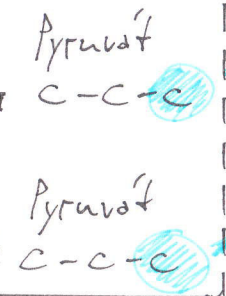 Pyruvát
C-C-C
Pyruvát
C-C-C